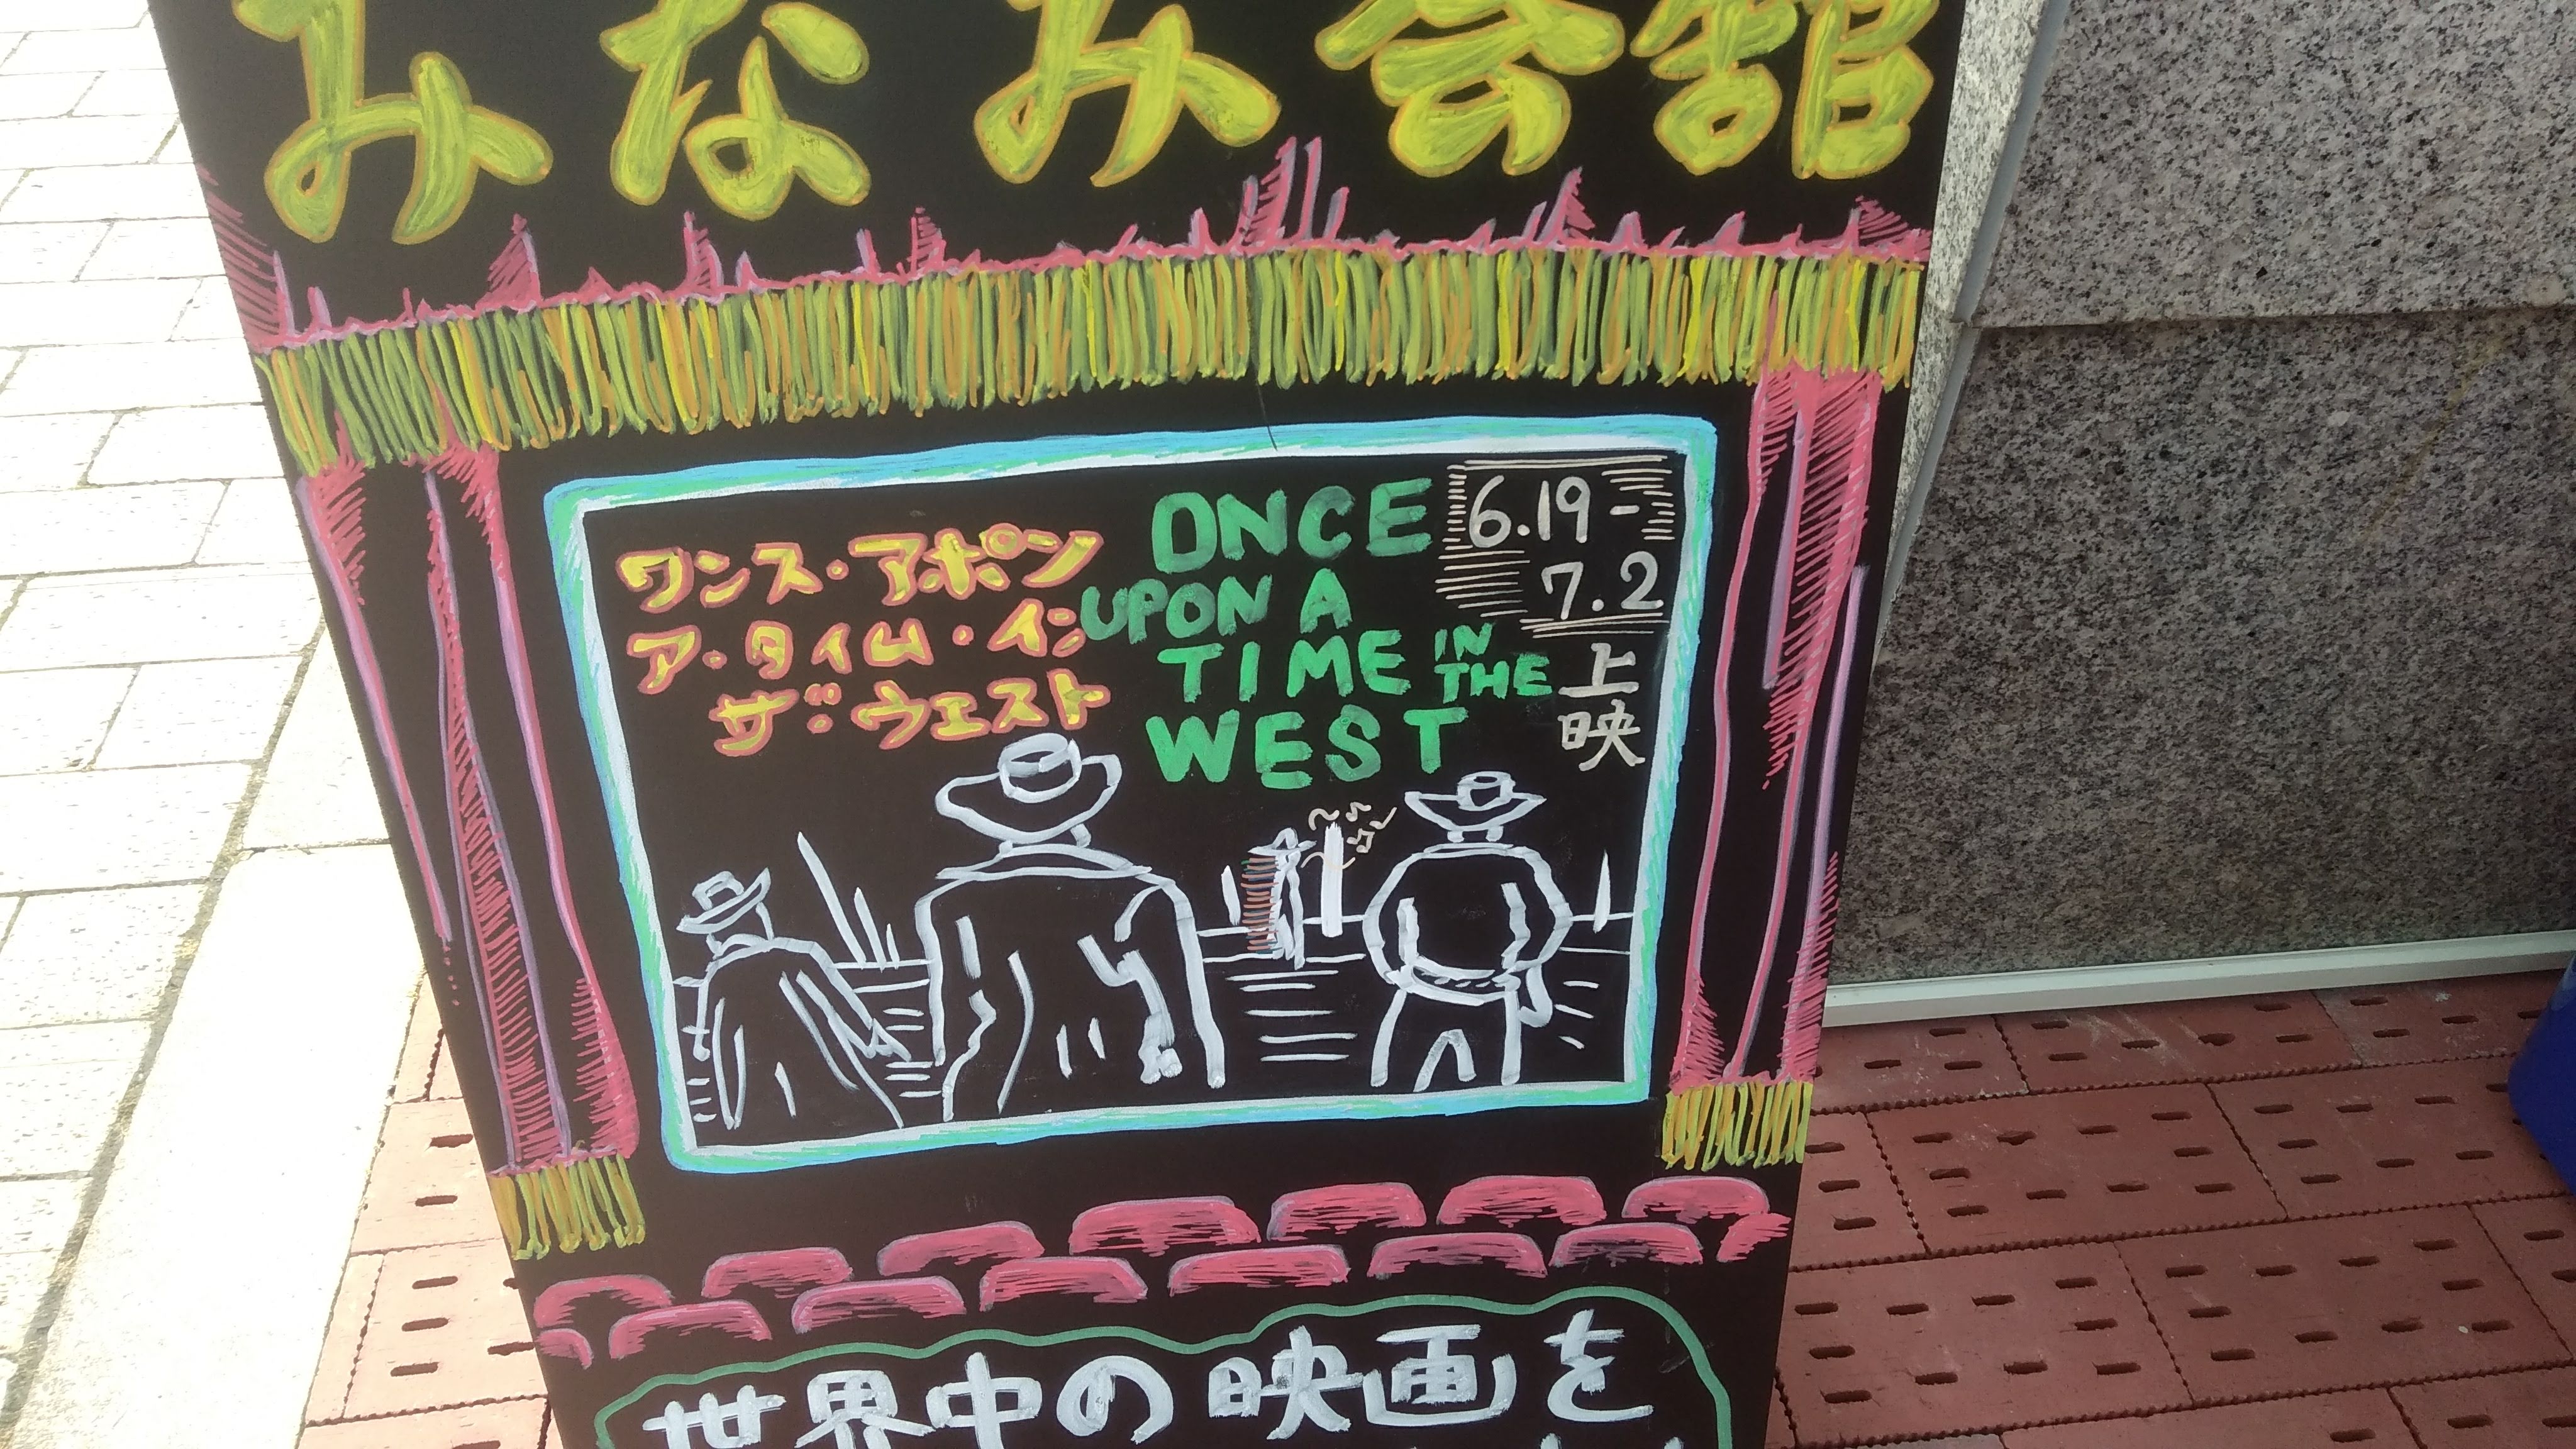 みなみ会館
ワンス・アポン
ア・タイム・イン
ザ・ウエスト
ONCE
UPON A
TIME IN THE
WEST
6.19-
7.2
上映
世界中の映画を